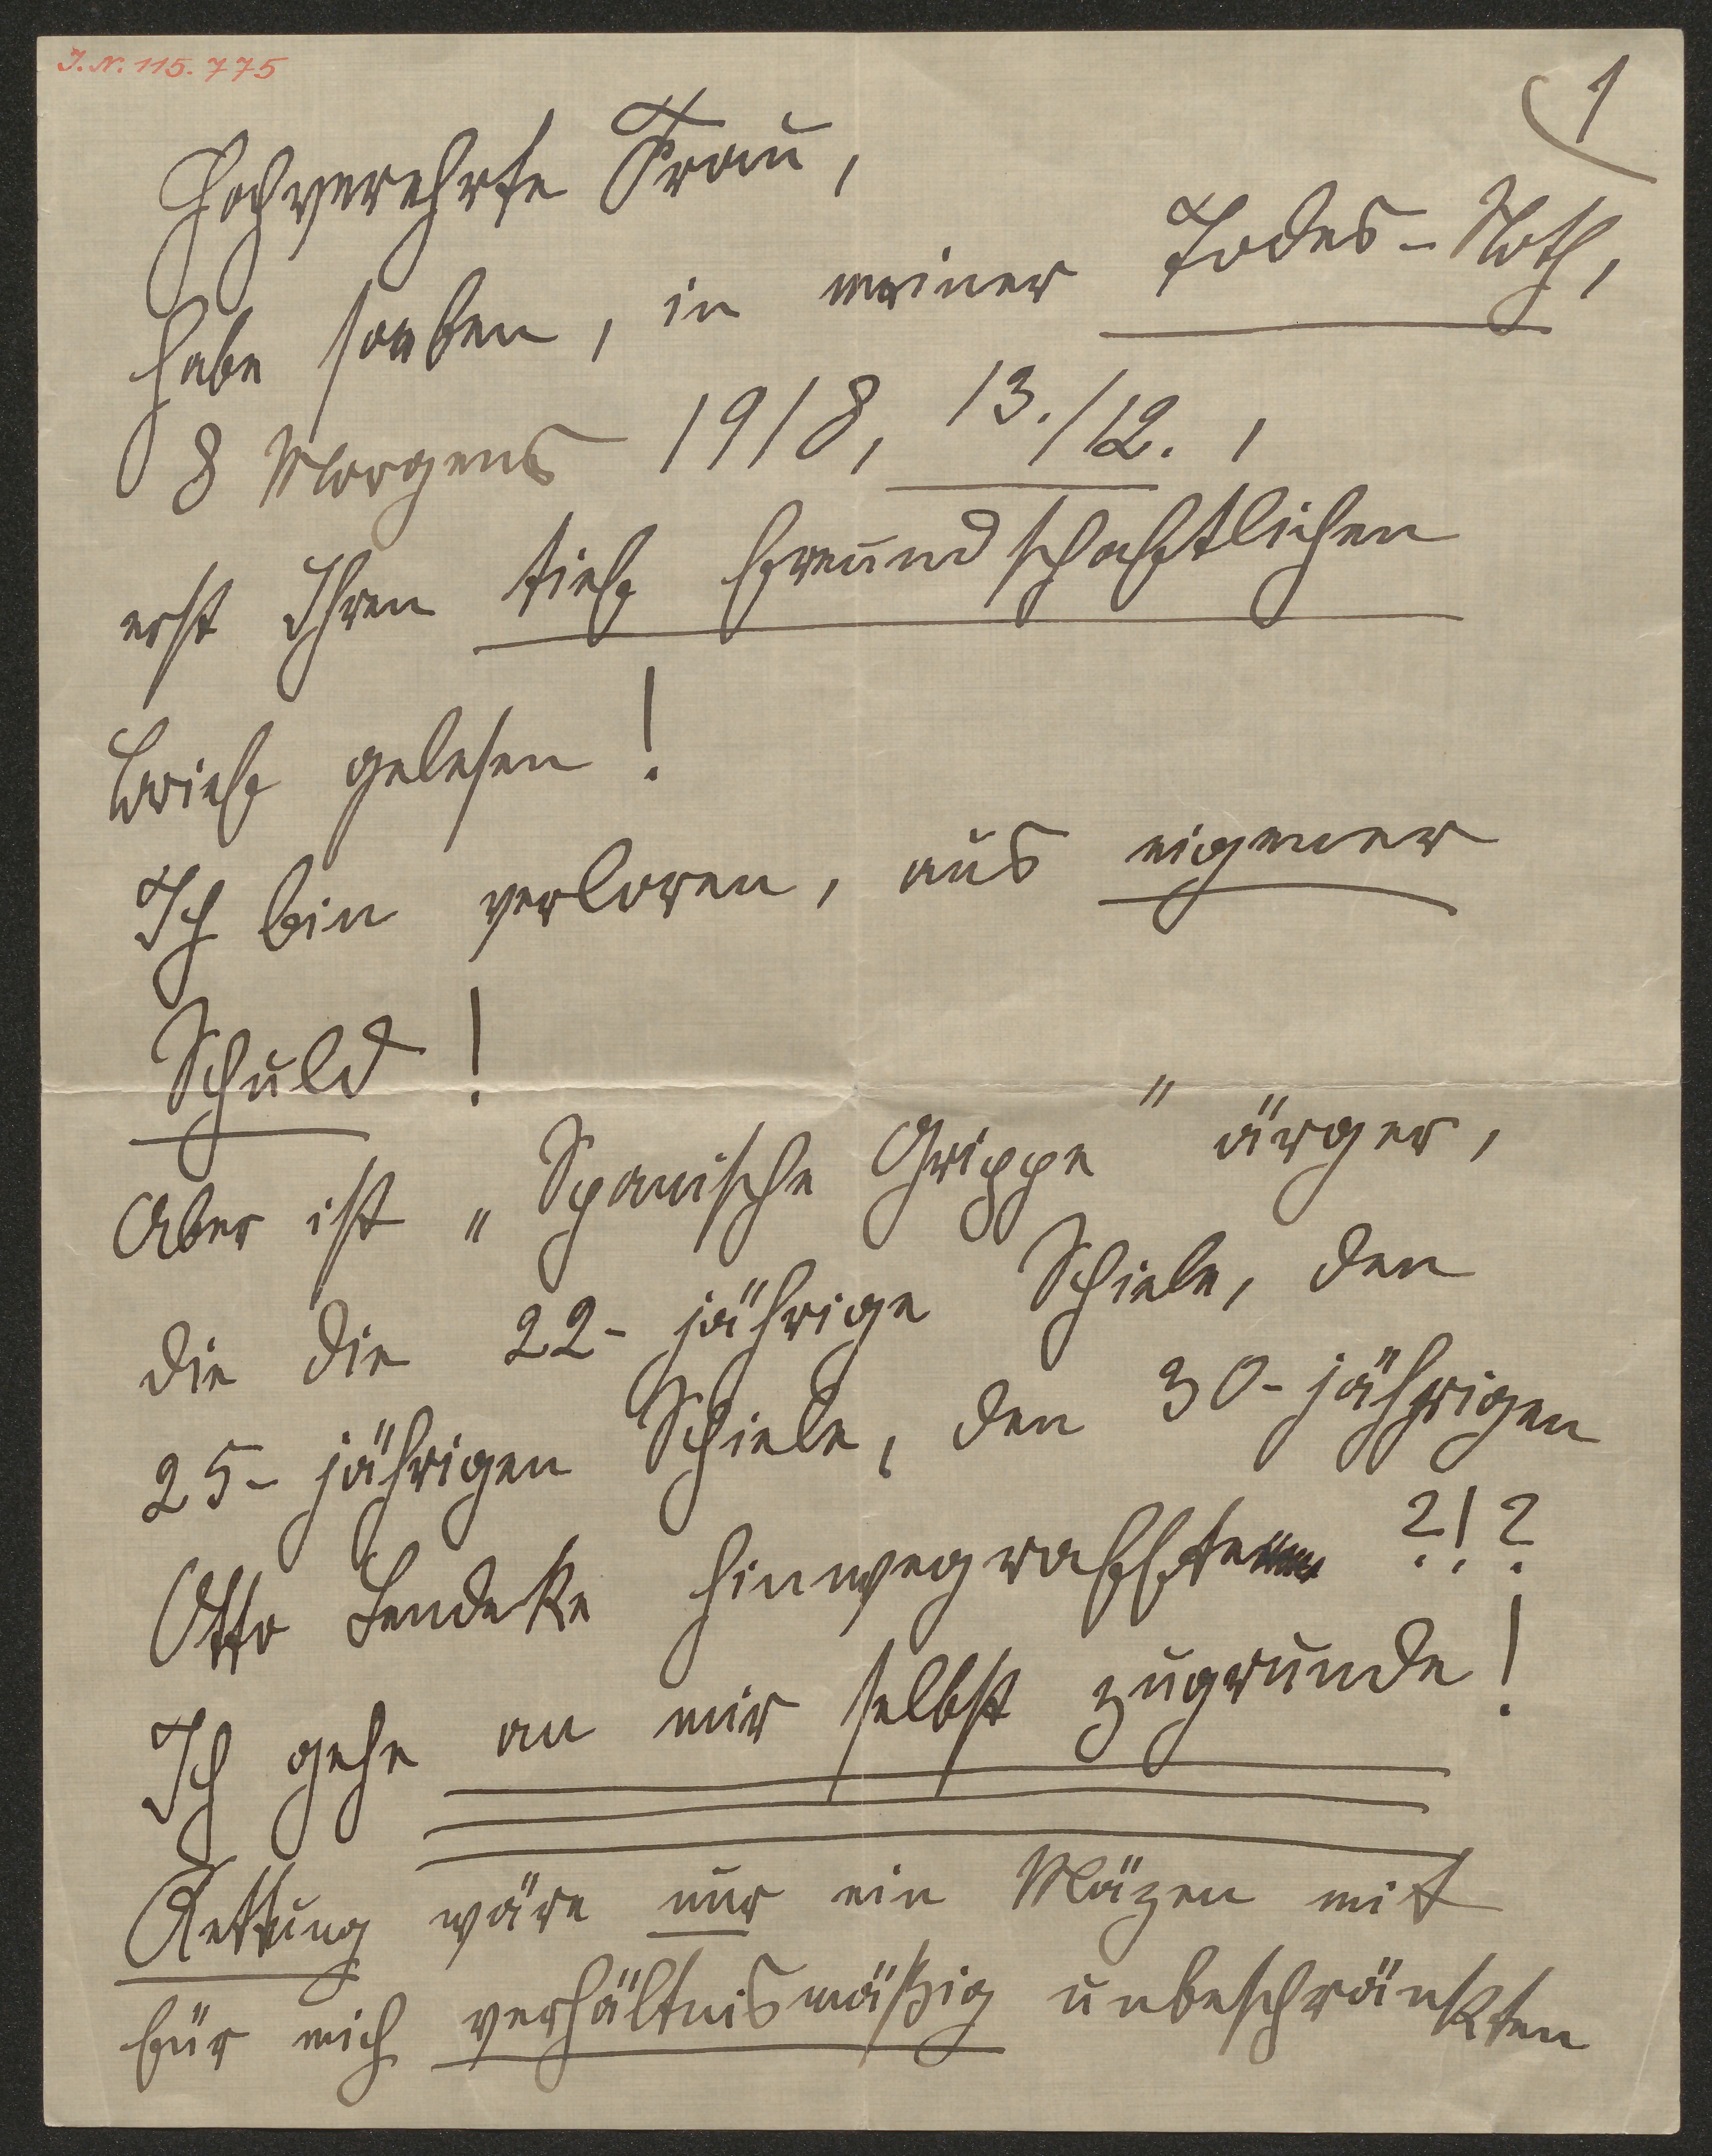 J. N. 115.775
1
Hochverehrte Frau,
habe soeben, in meiner Todes-Noth,
8 Morgens 1918, 13./12.,
erst Ihren tief freundschaftlichen
Brief gelesen!
Ich bin verloren, aus eigener
Schuld!
Aber ist „Spanische Grippe" ärger,
die die 22-jährige Schiele, den
25-jährigen Schiele, den 30-jährigen
Otto Lendeke hinwegraffte ?!?
Ich gehe an mir selbst zugrunde!
Rettung wäre nur ein Mäzen mit
für mich verhältnismäßig unbeschränkten